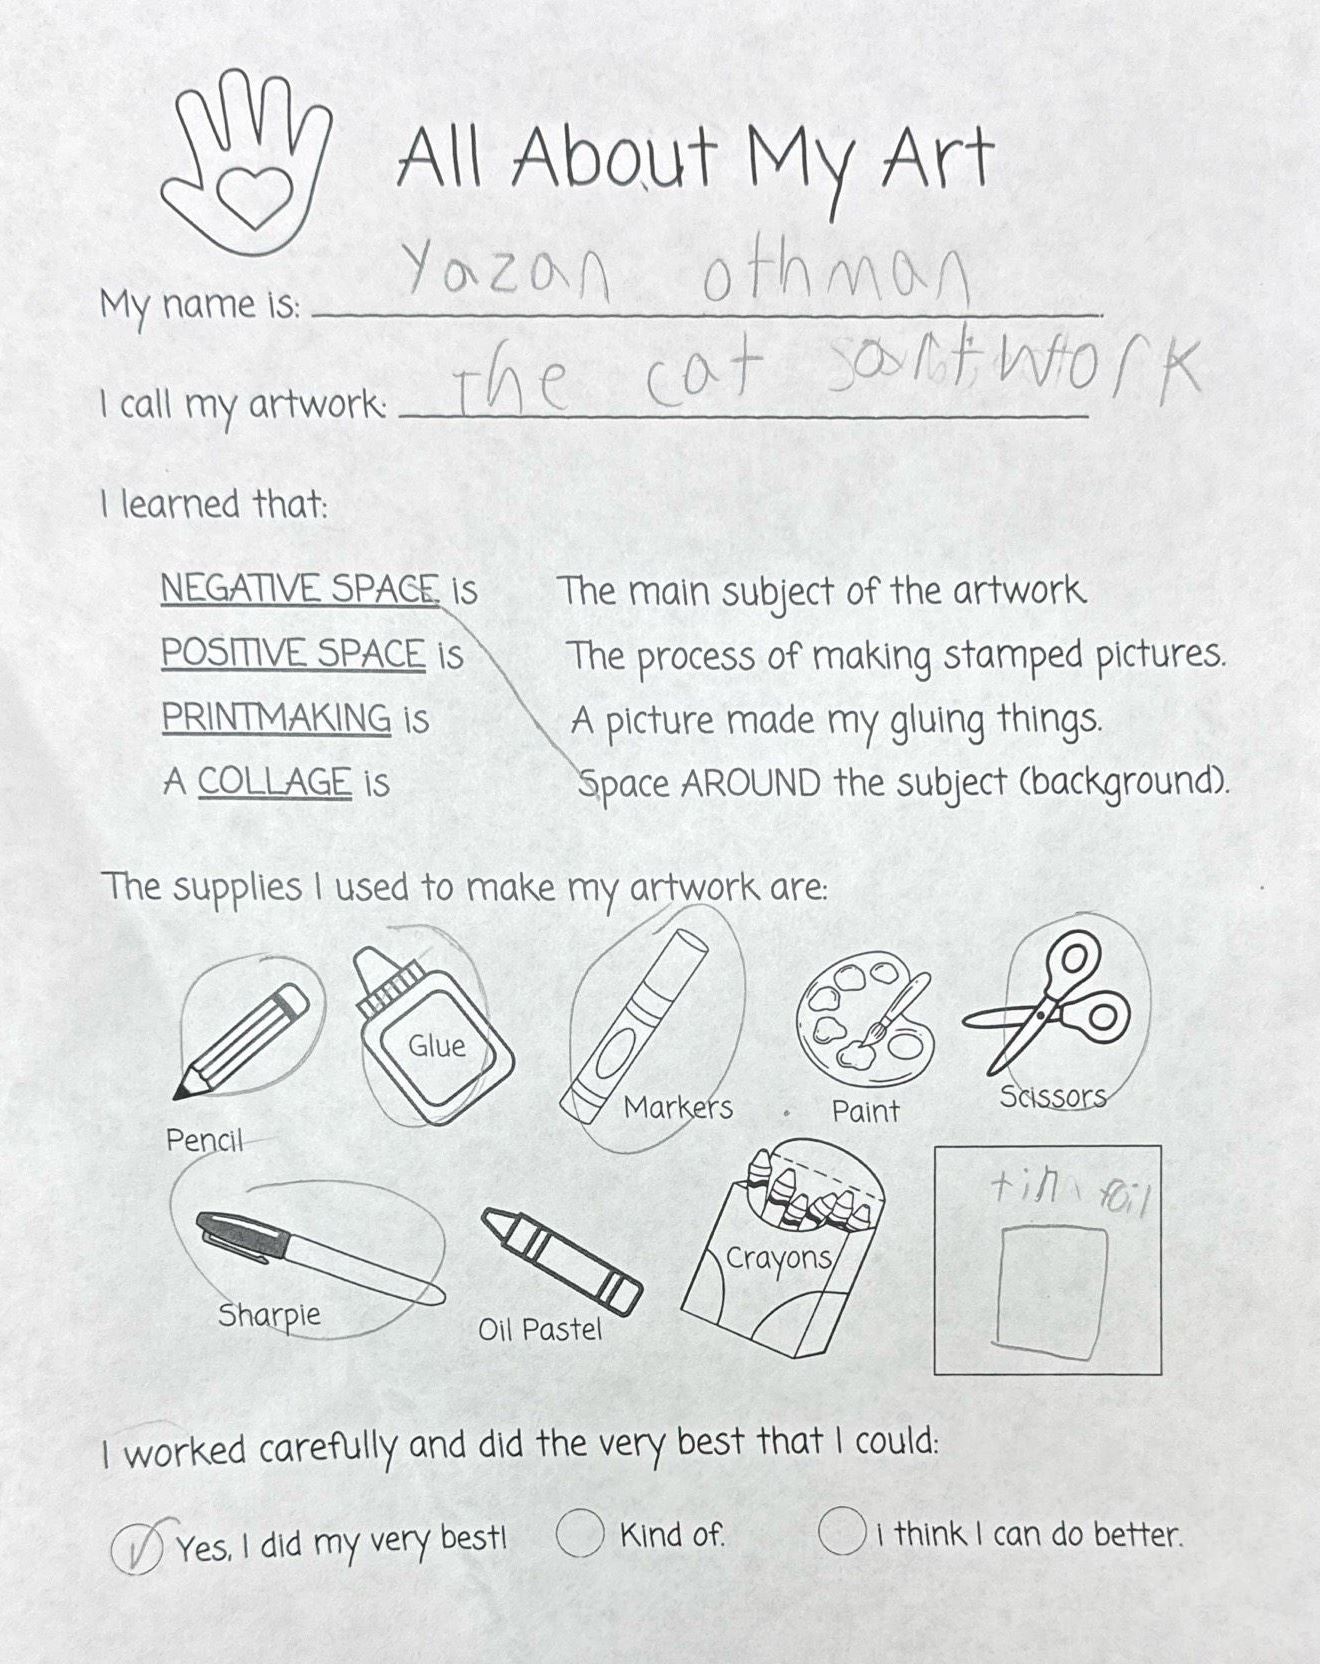 All About My Art
Yazan othman
My name is:
The cat sartwork
I call my artwork:
I learned that:
NEGATIVE SPACE is The main subject of the artwork
POSITIVE SPACE is The process of making stamped pictures.
PRINTMAKING is A picture made my gluing things.
A COLLAGE is Space AROUND the subject (background).
The supplies I used to make my artwork are:
Glue
Markers
Paint
Scissors
Pencil
tin foil
Crayons
Sharpie
Oil Pastel
I worked carefully and did the very best that I could:
Yes, I did my very best! Kind of. i think I can do better.